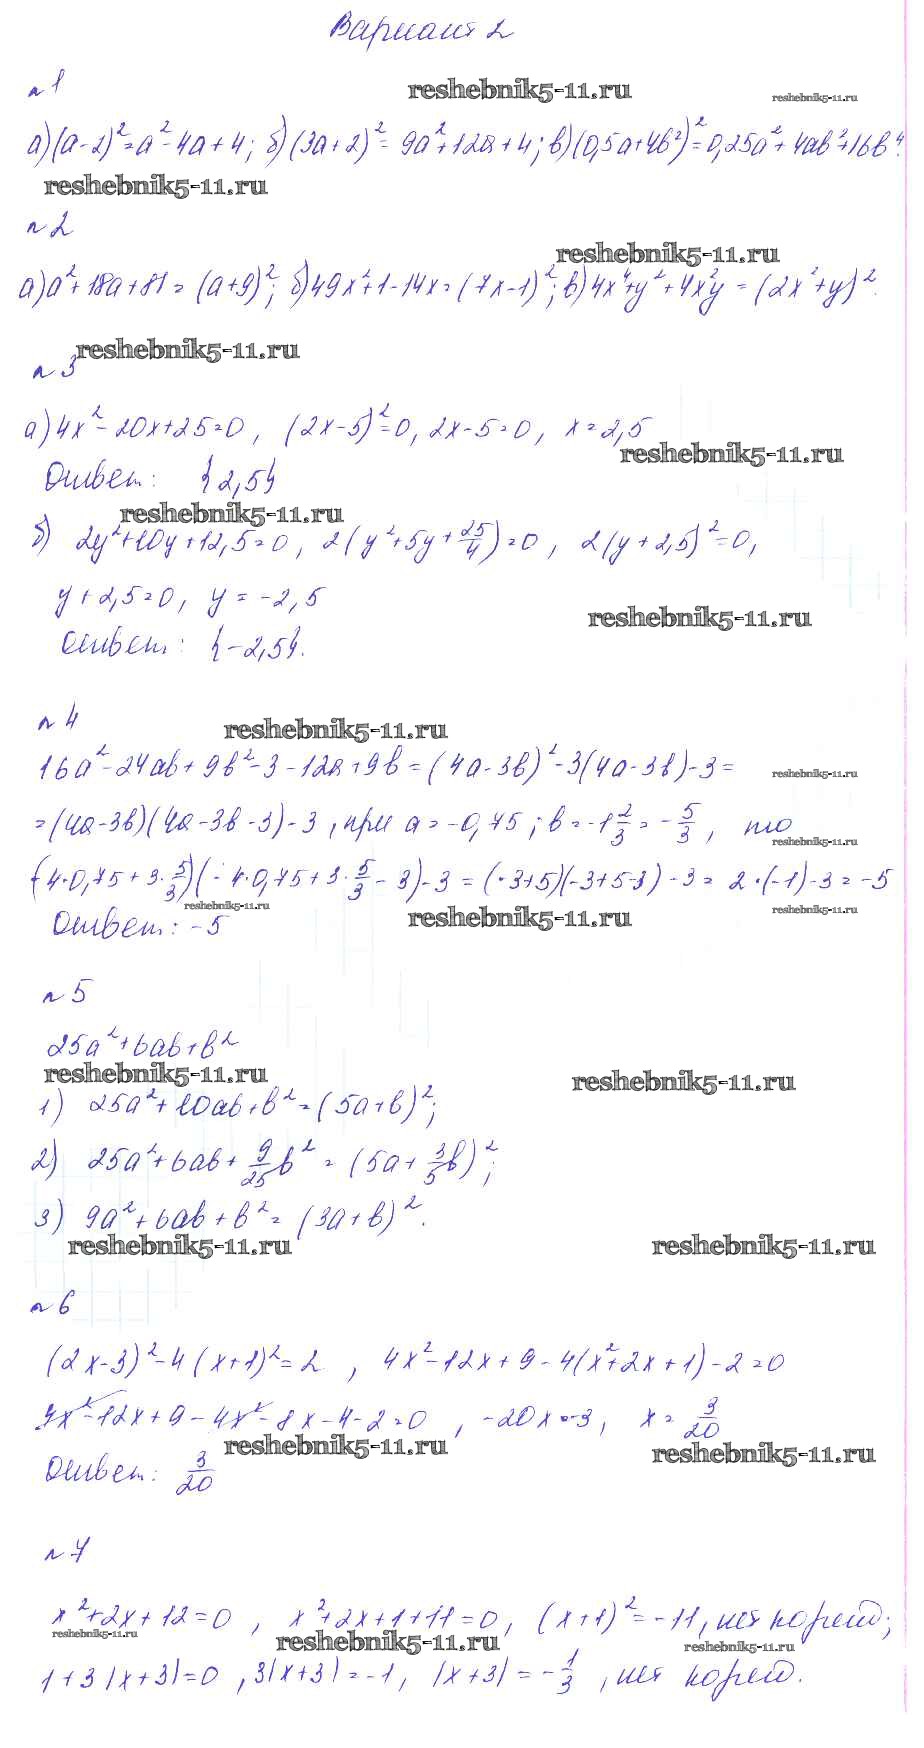 Вариант 2
№1
reshebnik5-11.ru
reshebnik5-11.ru
а) (a-2)²=a²-4a+4; б) (3a+2)²=9a²+12a+4; в) (0,5a+4b²)²=0,25a²+4ab²+16b⁴.
reshebnik5-11.ru
№2
reshebnik5-11.ru
а) a²+18a+81=(a+9)²; б) 49x²+1-14x=(7x-1)²; в) 4x⁴+y²+4x²y=(2x²+y)².
reshebnik5-11.ru
№3
а) 4x²-20x+25=0, (2x-5)²=0, 2x-5=0, x=2,5
reshebnik5-11.ru
Ответ: {2,5}
reshebnik5-11.ru
б) 2y²+10y+12,5=0, 2(y²+5y+25/4)=0, 2(y+2,5)²=0,
y+2,5=0, y=-2,5
reshebnik5-11.ru
Ответ: {-2,5}.
№4
reshebnik5-11.ru
16a²-24ab+9b²-3-12a+9b=(4a-3b)²-3(4a-3b)-3=
reshebnik5-11.ru
=(4a-3b)(4a-3b-3)-3, при a=-0,75; b=-1 2/3=-5/3, то
reshebnik5-11.ru
(-4·0,75+3·5/3)(-4·0,75+3·5/3-3)-3=(-3+5)(-3+5-3)-3=2·(-1)-3=-5
reshebnik5-11.ru
reshebnik5-11.ru
reshebnik5-11.ru
Ответ: -5
№5
25a²+6ab+b²
reshebnik5-11.ru
reshebnik5-11.ru
1) 25a²+10ab+b²=(5a+b)²;
2) 25a²+6ab+9/25b²=(5a+3/5b)²;
3) 9a²+6ab+b²=(3a+b)².
reshebnik5-11.ru
reshebnik5-11.ru
№6
(2x-3)²-4(x+1)²=2, 4x²-12x+9-4(x²+2x+1)-2=0
4x²-12x+9-4x²-8x-4-2=0, -20x=-3, x=3/20
reshebnik5-11.ru
reshebnik5-11.ru
Ответ: 3/20
№7
x²+2x+12=0, x²+2x+1+11=0, (x+1)²=-11, нет корней;
reshebnik5-11.ru
reshebnik5-11.ru
reshebnik5-11.ru
1+3|x+3|=0, 3|x+3|=-1, |x+3|=-1/3, нет корней.